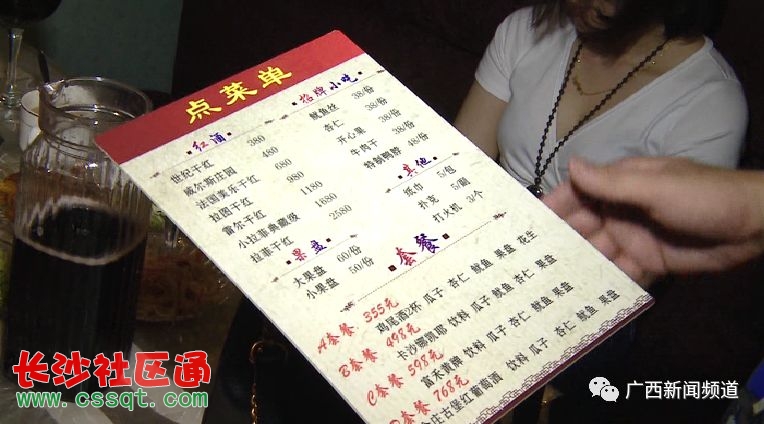 点菜单
红酒
世纪干红 380
威尔斯庄园 480
法国美乐干红 680
拉图干红 980
雷尔干红 1180
小拉菲典藏级 1680
拉菲干红 2580
果盘
大果盘 60/份
小果盘 50/份
招牌小吃
鱿鱼丝 38/份
杏仁 38/份
开心果 38/份
牛肉干 38/份
特制鸭脖 48/份
其他
纸巾 5/包
扑克 5/副
打火机 3/个
套餐
A套餐 355元
鸡尾酒2杯 瓜子 杏仁 鱿鱼 果盘 花生
B套餐 498元
卡沙娜凯耶 饮料 瓜子 鱿鱼 杏仁 果盘
C套餐 598元
富禾黄牌 饮料 瓜子 杏仁 鱿鱼 果盘
D套餐 768元
庄古堡红葡萄酒 饮料 瓜子 杏仁 鱿鱼 果盘
长沙社区通
www.cssqt.com
广西新闻频道